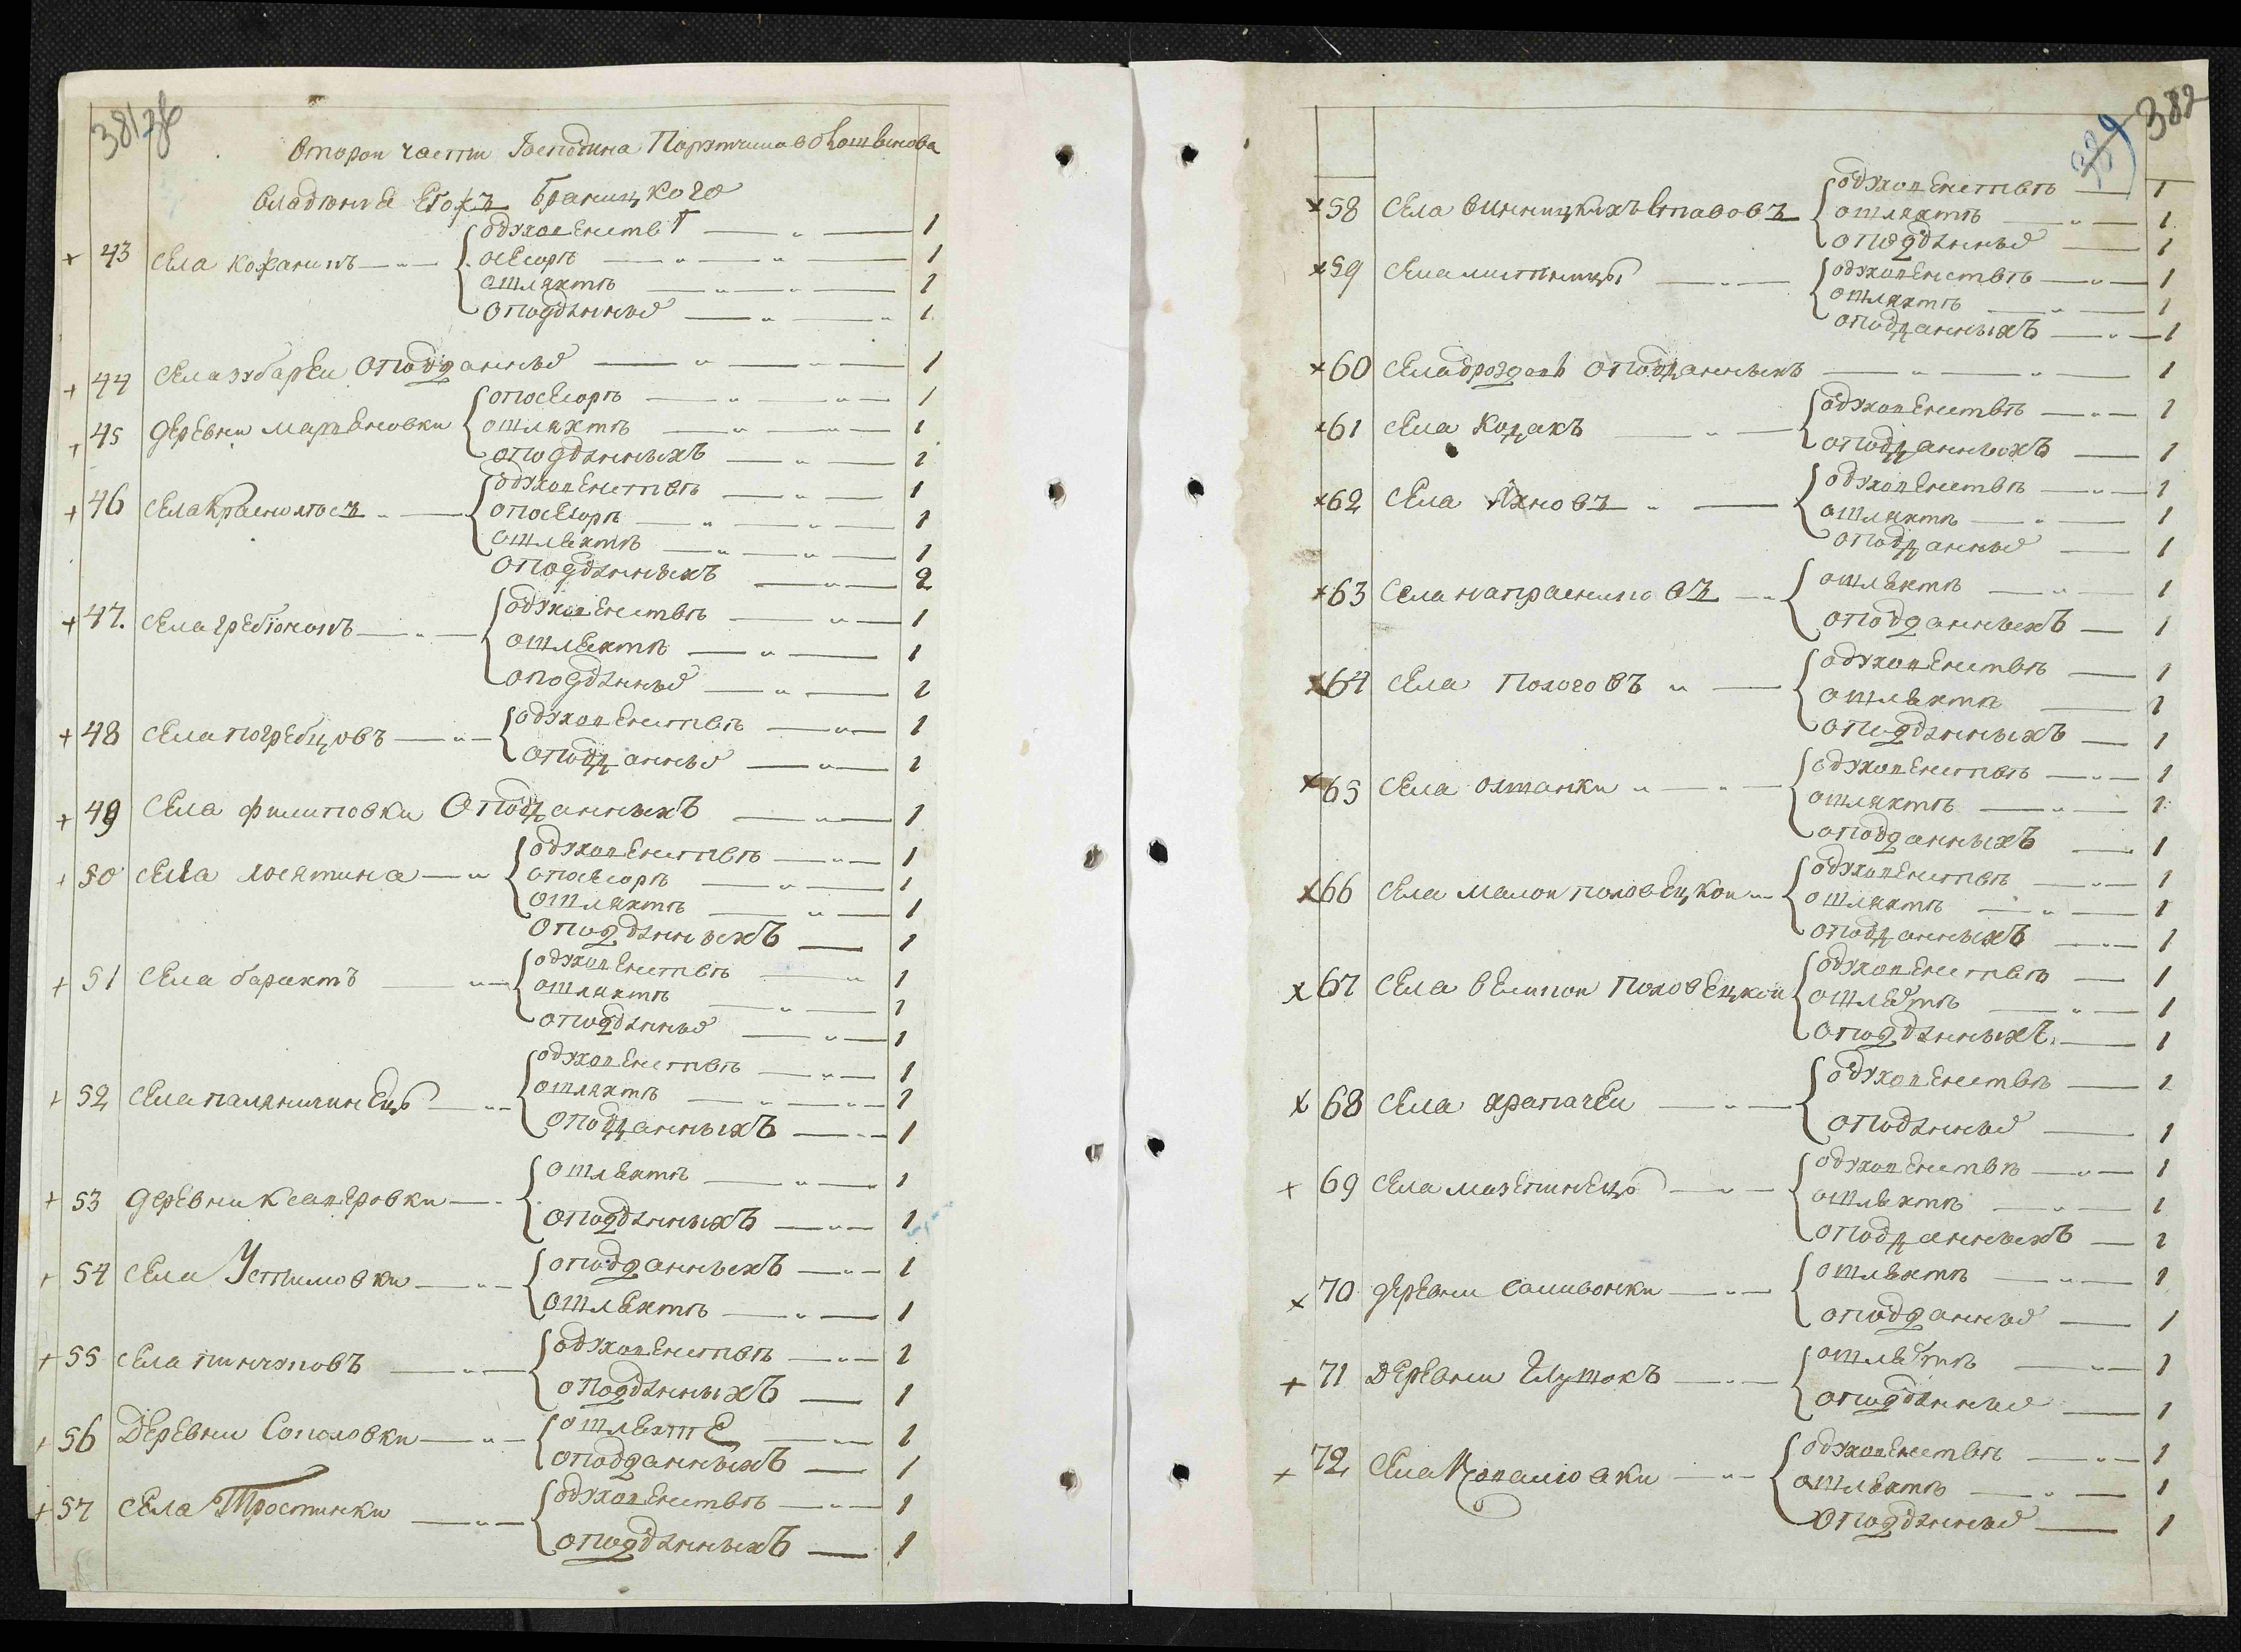 381 зв
Второи части Господина Порутчика
владения Его: Браницкого
+ 43 Села кожанипъ одухоценствѣ 1
осЕсорѣ 1
ошляхтѣ 1
оподданныхъ 1
+ 44 Села збарЕи Оподданныхъ 1
+ 45 дЕрЕвни мартЕновки опосЕсорѣ 1
ошляхтѣ 1
оподданныхъ 1
+ 46 села краснолѣсъ одухоцЕнствѣ 1
опосЕсорѣ 1
ошляхтѣ 1
оподданныхъ 2
+ 47. сЕла грЕбіонокъ одухоцЕнствѣ 1
ошляхтѣ 1
оподданныхъ 1
+ 48 сЕла погрЕбцовъ одухоцЕнствѣ 1
оподданныхъ 1
+ 49 СЕла филиповки Оподданныхъ 1
+ 50 сЕла лосятина одухоцЕнствѣ 1
опосЕсорѣ 1
ошляхтѣ 1
оподданныхъ 1
+ 51 сЕла барахтъ одухоцЕнствѣ 1
ошляхтѣ 1
оподданныхъ 1
+ 52 сЕла паляничинЕцъ одухоцЕнствѣ 1
ошляхтѣ 1
оподданныхъ 1
+ 53 дЕрЕвни ксавЕровки ошляхтѣ 1
оподданныхъ 1
+ 54 сЕла Устимовки оподданныхъ 1
ошляхтѣ 1
+ 55 сЕла пинчуковъ одухоцЕнствѣ 1
оподданныхъ 1
+ 56 ДЕрЕвни Соколовки ошляхтЕ 1
оподданныхъ 1
+ 57 сЕла Тростинки одухоцЕнствѣ 1
оподданныхъ 1
382
x 58 сЕла винницкихъ ставовъ одухоцЕнствѣ 1
ошляхтѣ 1
оподданныхъ 1
x 59 сЕла митницы одухоцЕнствѣ 1
ошляхтѣ 1
оподданныхъ 1
x 60 сЕла дрозды оподданныхъ 1
x 61 сЕла Кодакъ одухоцЕнствѣ 1
оподданныхъ 1
x 62 сЕла Яхновъ одухоцЕнствѣ 1
ошляхтѣ 1
оподданныхъ 1
x 63 сЕла напрасниковъ ошляхтѣ 1
оподданныхъ 1
x 64 сЕла пологовъ одухоцЕнствѣ 1
ошляхтѣ 1
оподданныхъ 1
x 65 сЕла олшанки одухоцЕнствѣ 1
ошляхтѣ 1
оподданныхъ 1
x 66 сЕла малои половЕцкои одухоцЕнствѣ 1
ошляхтѣ 1
оподданныхъ 1
x 67 сЕла вЕликои половЕцкои одухоцЕнствѣ 1
ошляхтѣ 1
оподданныхъ 1
x 68 сЕла храпачЕи одухоцЕнствѣ 1
оподданныхъ 1
+ 69 сЕла мазЕпинЕцъ одухоцЕнствѣ 1
ошляхтѣ 1
оподданныхъ 1
x 70 дЕрЕвни саливонки ошляхтѣ 1
оподданныхъ 1
+ 71 ДЕрЕвни ошляхтѣ 1
оподданныхъ 1
+ 72 сЕла одухоцЕнствѣ 1
ошляхтѣ 1
оподданныхъ 1